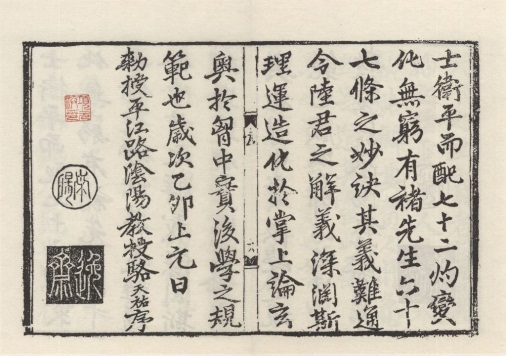 士衛平而配七十二灼變
化無窮有褚先生六十
七條之妙訣其義難通
今陸君之解義深淵斯
理運造化於掌上論玄
奧於智中實後學之規
範也歲次乙卯上元日
勑授平江路陰陽教授駱天祐序